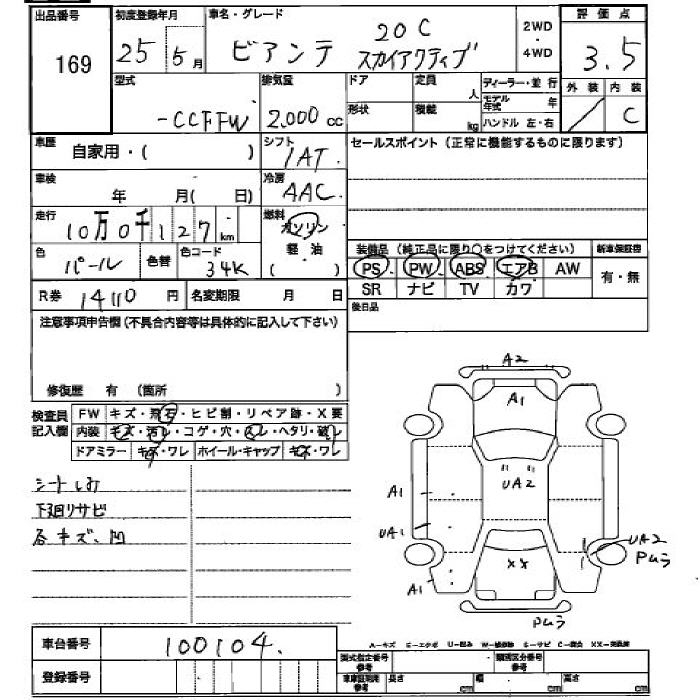 出品番号 初度登録年月 車名・グレード 評価点
169 25 5月 ビアンテ 20C スカイアクティブ 2WD・4WD 3.5
外装 内装
C
型式 排気量 ドア 定員 人 ディーラー・並行
-CCFFW 2,000 cc 形状 積載 kg モデル年式 年
ハンドル 左・右
車歴 自家用・( ) シフト 1AT. セールスポイント (正常に機能するものに限ります)
車検 年 月( 日) 冷房 AAC
走行 10万0千127 km 燃料 ガソリン
軽油
( )
色 パール 色替 色コード 34K
装備品 (純正品に限り○をつけてください) 新車保証書
PS PW ABS エアB AW 有・無
SR ナビ TV カワ
R券 14110 円 名変期限 月 日 後日品
注意事項申告欄 (不具合内容等は具体的に記入して下さい)
修復歴 有 (箇所 )
検査員記入欄 FW キズ・飛石・ヒビ割・リペア跡・X要
内装 キズ・汚レ・コゲ・穴・スレ・ヘタリ・破レ
ドアミラー キズ・ワレ ホイール・キャップ キズ・ワレ
シートしみ
下廻りサビ
各キズ、凹
A2
A1
UA2
A1
UA1
UA2
Pムラ
XX
A1
Pムラ
車台番号 100104.
登録番号
型式指定番号 参考 類別区分番号 参考
車庫証明用 参考 長さ cm 幅 cm 高さ cm